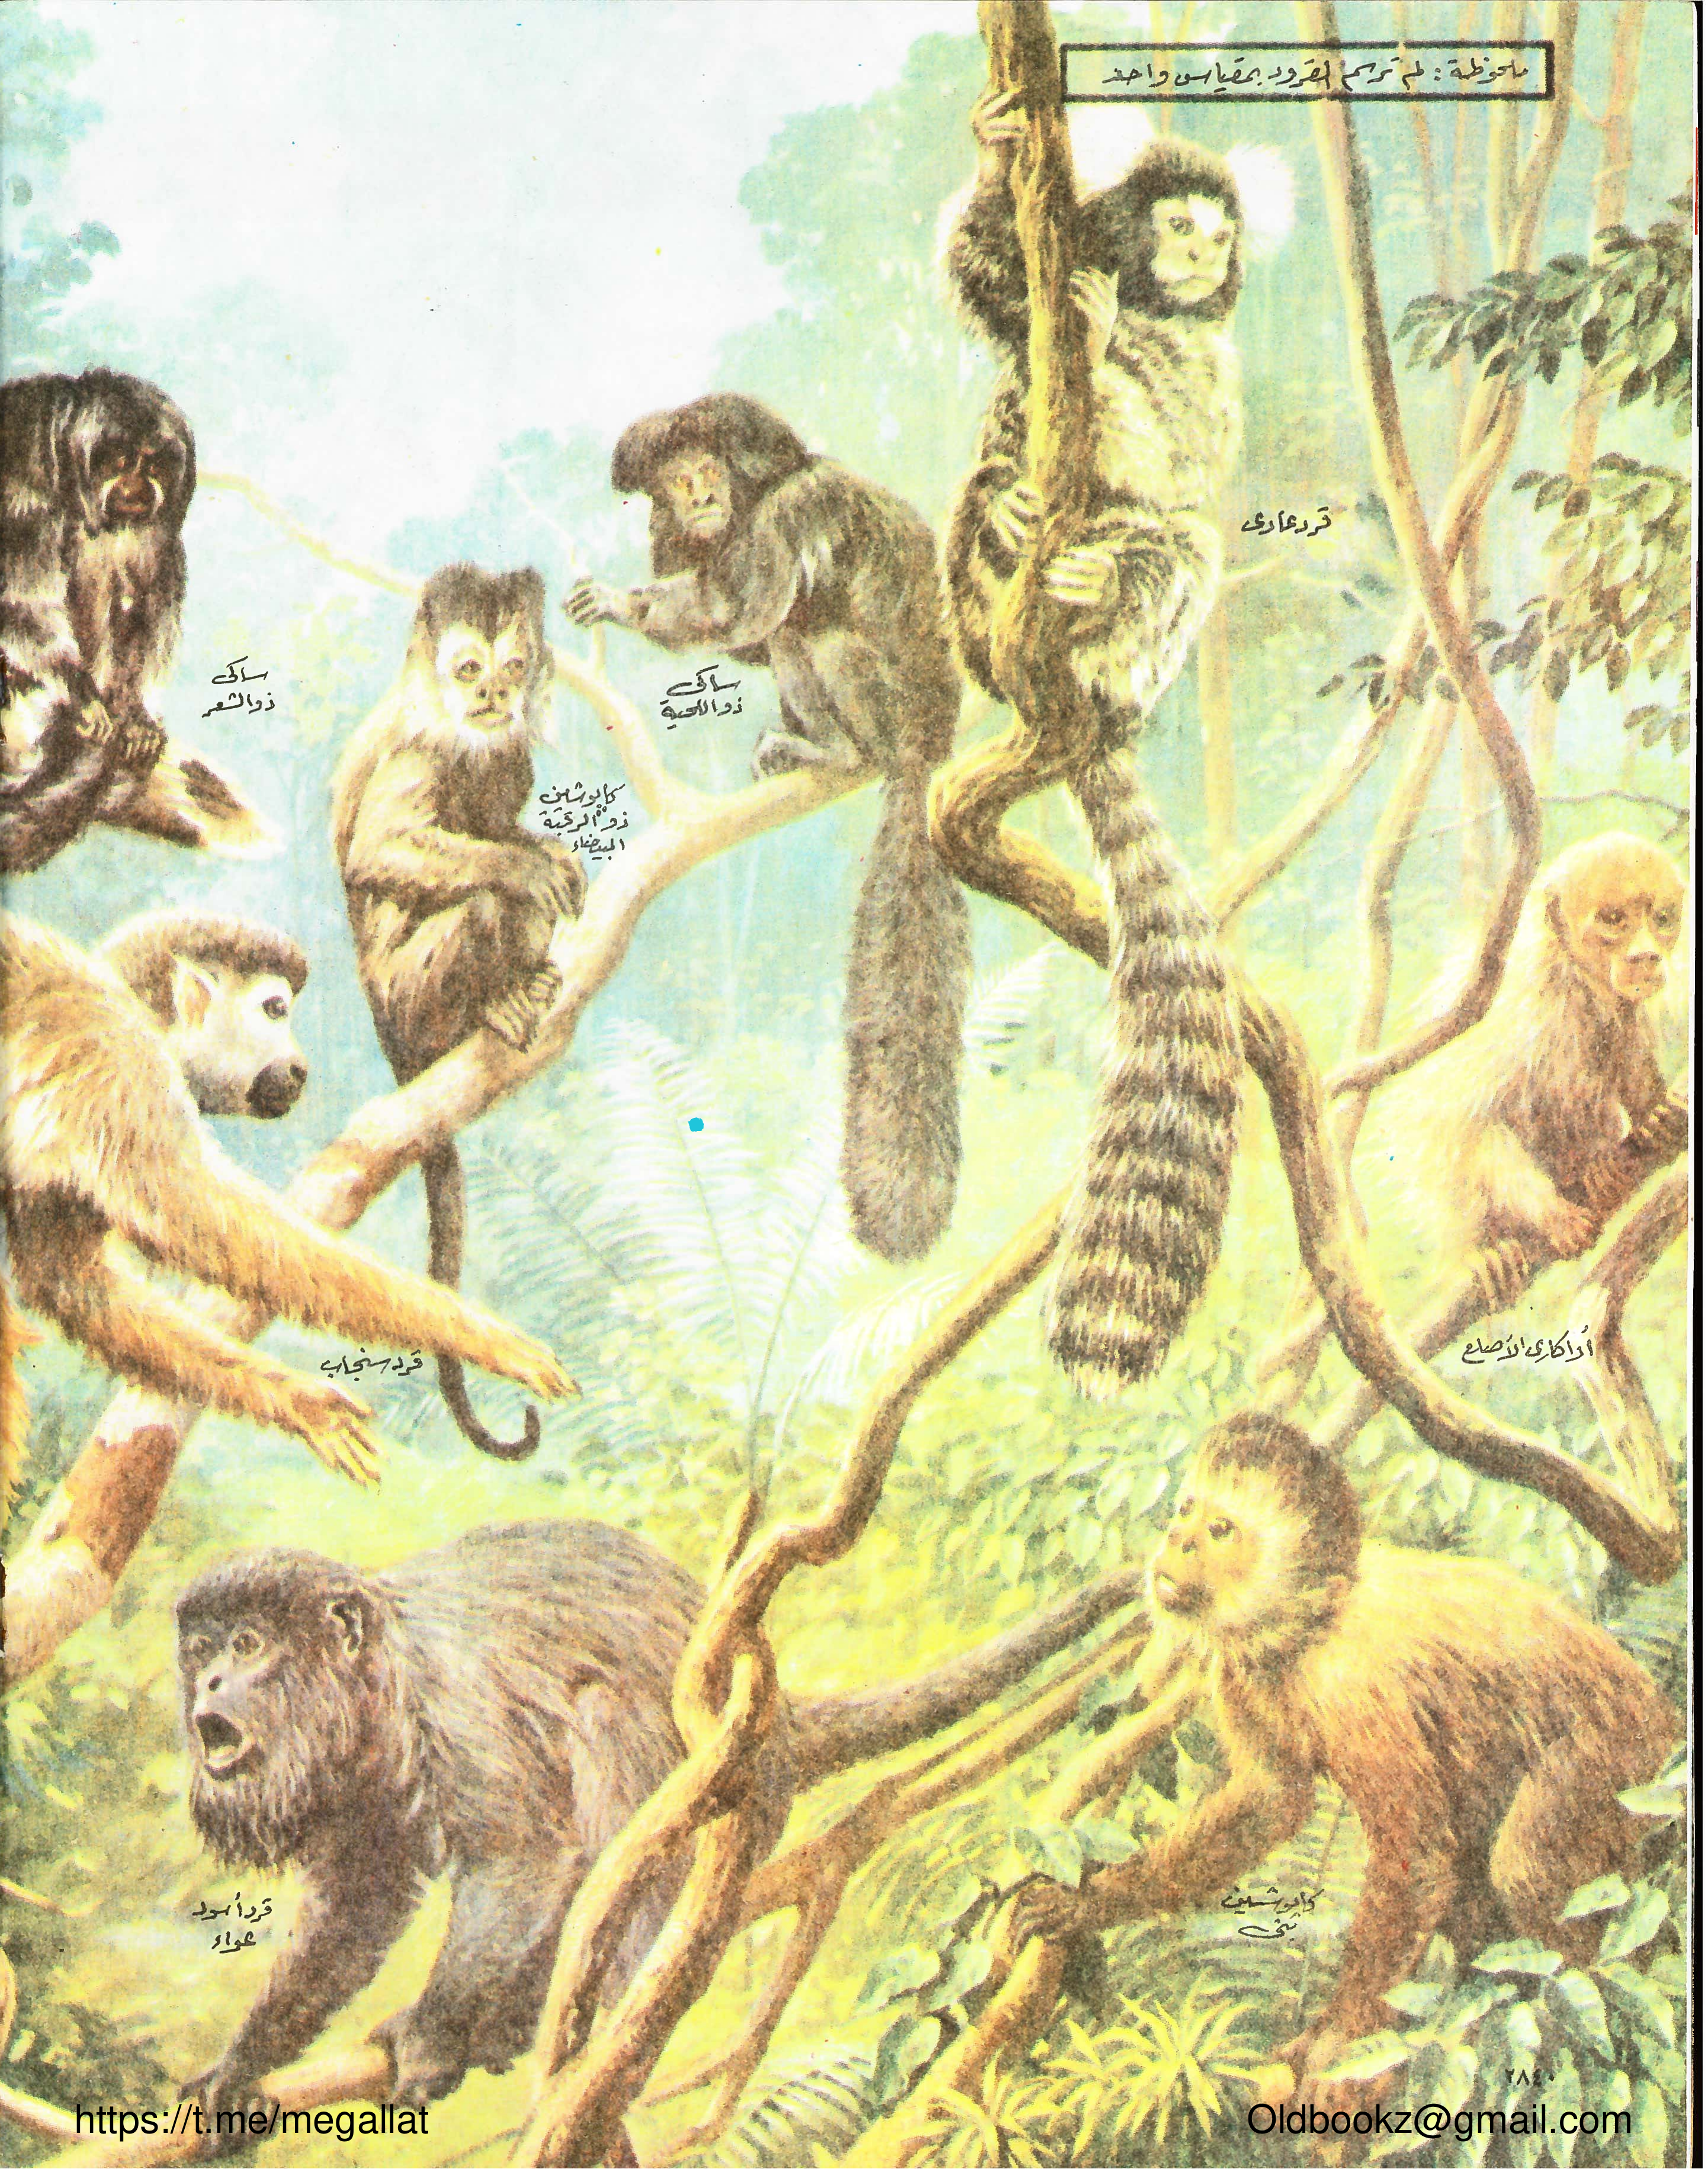 ملحوظة : لم ترسم القرود بمقياس واحد
قرد عادى
ساكى
ذو اللحية
ساكى
ذو الشعر
كابوشين
ذو الرقبة
البيضاء
قرد سنجاب
أواكارى الأصلع
قرد أسود
عواء
كابوشين
بنى
٢٨٤٠
https://t.me/megallat
Oldbookz@gmail.com